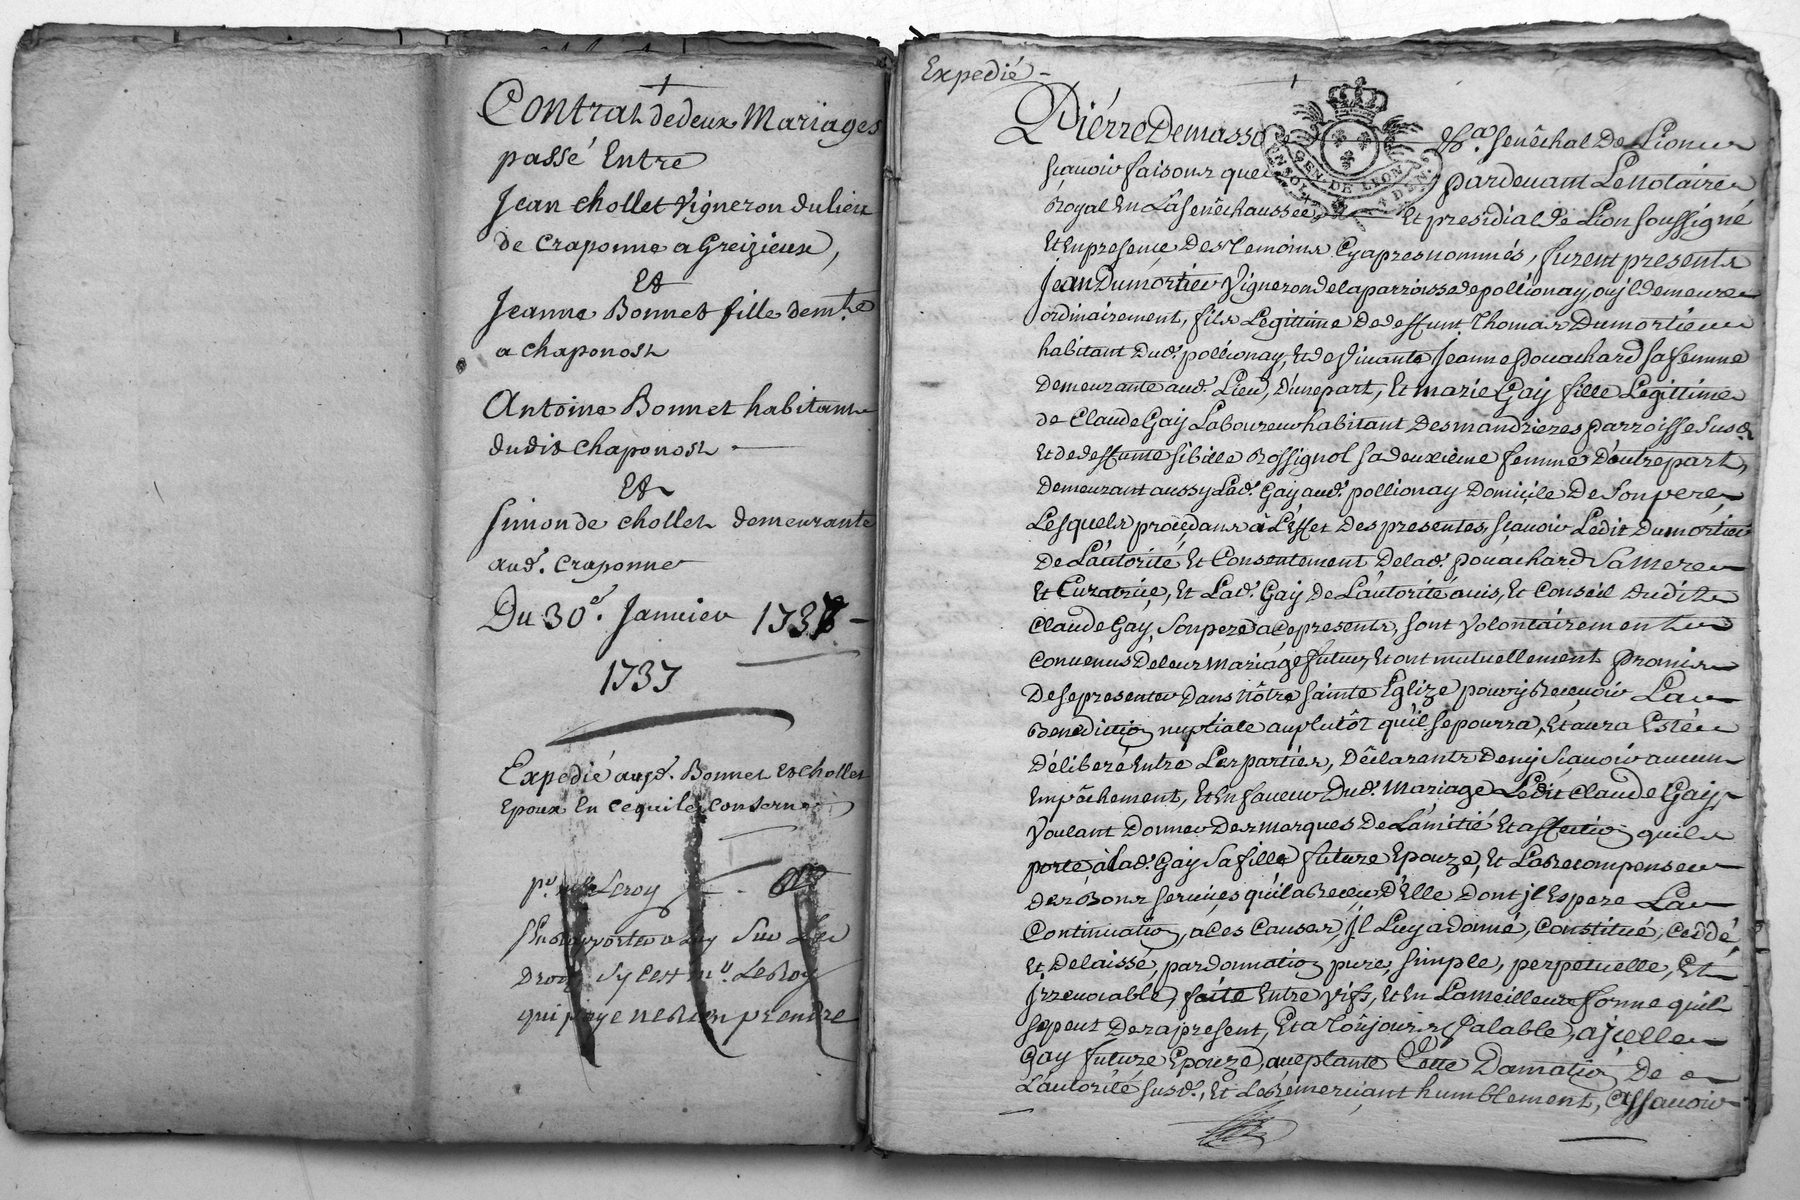 Contrat de deux Mariages
passé Entre
Jean chollet Vigneron du lieu
de Craponne a Greizieux,
Et
Jeanne Bonnet fille demte
a chaponost
Antoine Bonnet habitant
dudit chaponost
Et
Simonde chollet demeurante
aud. Craponne
Du 30e. Janvier
1737
Expedié auxd. Bonnet et chollet
Epoux En cequi les conserne
Leroy
Sur Les
Droits sy cest mr. LeRoy
qui paye ne Rien prendre
Expedié
Pierre Demasso Senêchal De Lion
sçavoir faisons que pardevant Le Notaire
Royal En La Senêchaussée Et presidial de Lion soussigné
Et En presence Des Temoins Cy apres nommés, furent presents
Jean Dumortier Vigneron de la parroisse de pollionay, ou jl demeure
ordinairement, fils Legittime De deffunt Thomas Dumortier
habitant Dud. pollionay, Et de Vivante Jeanne Pouachard sa femme
Demeurante aud. Lieu, D'une part, Et marie Gay fille Legittime
de Claude Gay Laboureur habitant Des mandrieres parroisse susd.
Et de deffunte Sibille Rossignol sa deuxième femme D'autre part,
Demeurant aussy Lad. Gay aud. pollionay Domicile De Son pere
Lesquels procedans à L'Effet Des presentes, sçavoir Ledit Dumortier
De L'autorité Et Consentement De lad. Pouachard Sa Mere
Et Curatrice, Et Lad. Gay De L'autorité avis, Et Conseil Dudit
Claude Gay, Son pere a ce present, sont Volontairement
Convenus De leur Mariage futur, Et ont mutuellement Promis
De se presenter Dans Nôtre Sainte Eglize pour y Recevoir La
Benediction nuptiale au plutôt qu'il se pourra, Et aura Esté
Déliberé Entre Les parties, Déclarants De n'y Sçavoir aucun
Empêchement, Et En faveur Dud. Mariage Ledit Claude Gay,
Voulant Donner Des marques De L'amitié Et affection qu'il
porte à Lad. Gay Sa fille future Epouze, Et La Recompenser
Des Bons services qu'il a Reçeu D'Elle Dont jl Espere La
Continuation, a Ces Causes, Jl Luy a donné, Constitué, Ceddé,
Et Delaissé, par donnation pure, simple, perpetuelle, Et
Irrevocable, faite Entre Vifs, Et En La meilleure forme qu'il
se peut Des a present, Et a Toûjours Valable, a jcelle
Gay future Epouze, acceptante Cette Donnation De
L'autorité susd., Et Le Remerciant humblement, Assavoir
GEN. DE LION